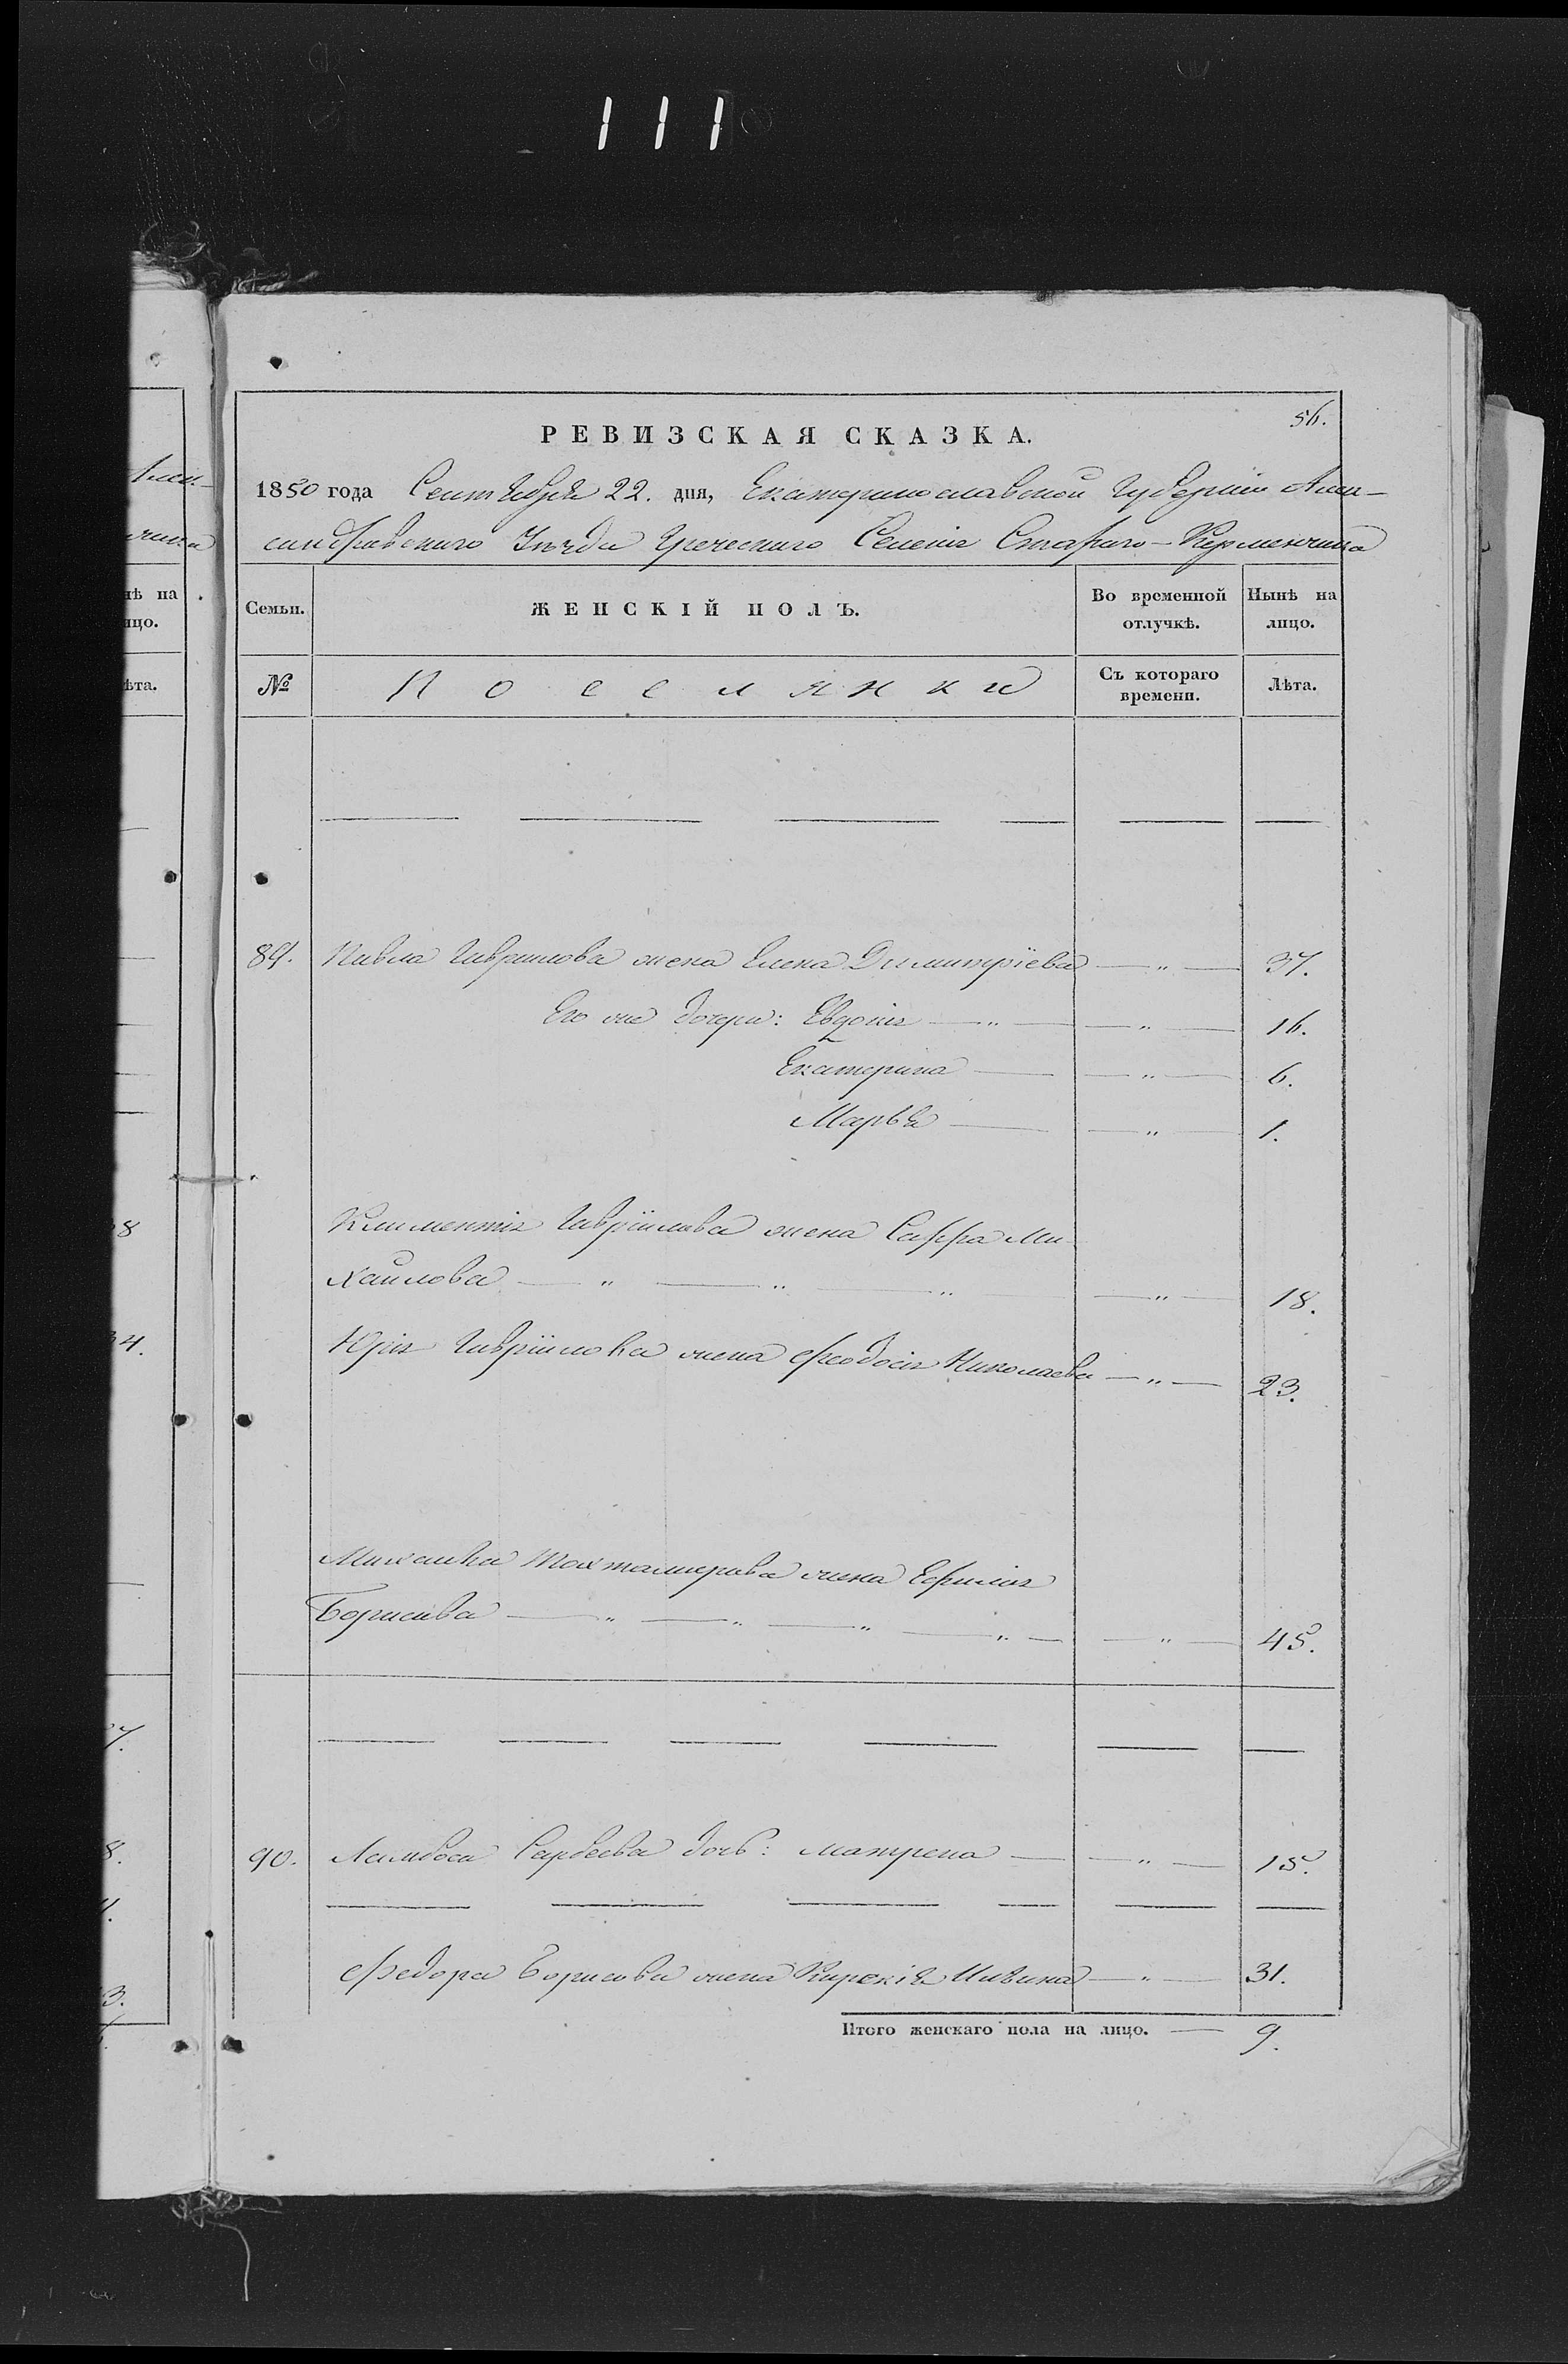 111
56.
РЕВИЗСКАЯ СКАЗКА.
1850 года Сентября 22. дня, Екатеринославской Губерніи Алек-
сандровскаго Уѣзда Греческаго Селенія Стараго-Керменчика
Семьи. ЖЕНСКІЙ ПОЛЪ. Во временной отлучкѣ. Нынѣ на лицо.
№ Поселянки Съ котораго времени. Лѣта.
89. Павла Гаврилова жена Елена Димитріева — „ — 37.
Его же дочери: Евдокія — „ — — „ — 16.
Екатерина — — „ — 6.
Марья — — „ — 1.
Климентія Гавріилова жена Сарра Ми-
хайлова — „ — „ — „ — — „ — 18.
Юрія Гавріилова жена Феодосія Николаева — „ — 23.
Михаила Тохтамирова жена Ефимія
Борисова — „ — „ — „ — „ — — „ — 45.
90. Ламбоса Сарбеева дочь: Матрена — — „ — 15.
Федора Борисова жена Кирекія — „ — 31.
Итого женскаго пола на лицо. — 9.